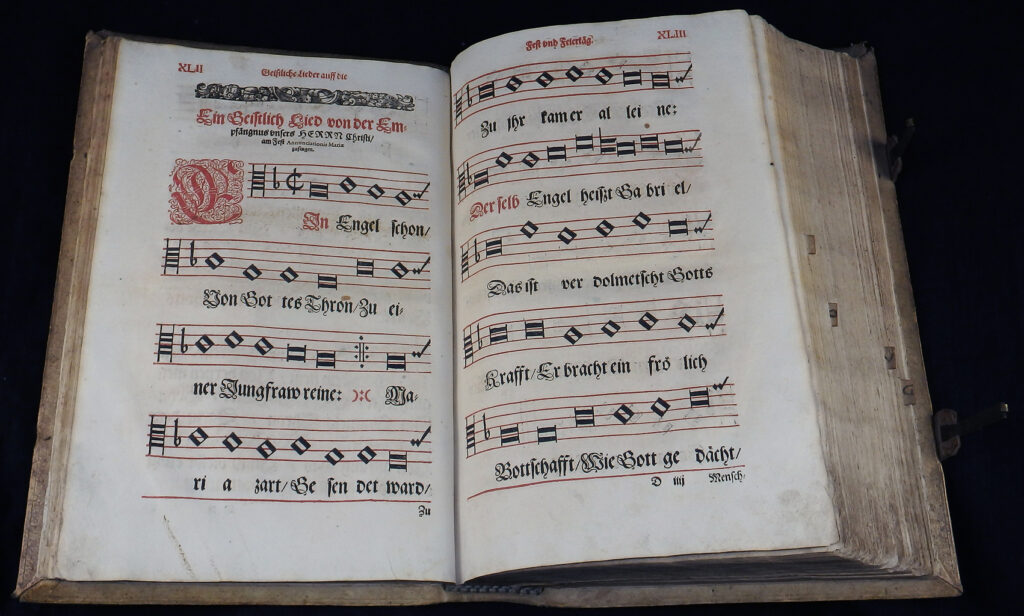 XLII
Geistliche Lieder auff die
Ein Geistlich Lied von der Em-
pfängnus unsers HERRN Christi/
am Fest Annunciationis Mariæ
gesungen.
EIn Engel schon/
Von Got tes Thron/ Zu ei-
ner Jungfraw reine: Ma-
ri a zart/ Ge sen det ward/
Zu
Fest vnd Feiertäg.
XLIII
Zu jhr kamer al lei ne:
Der selb Engel heißt Ga bri el/
Das ist ver dolmetscht Gotts
Krafft/ Er bracht ein frö lich
Bottschafft/ Wie Gott ge dächt/
D iiij
Mensch-